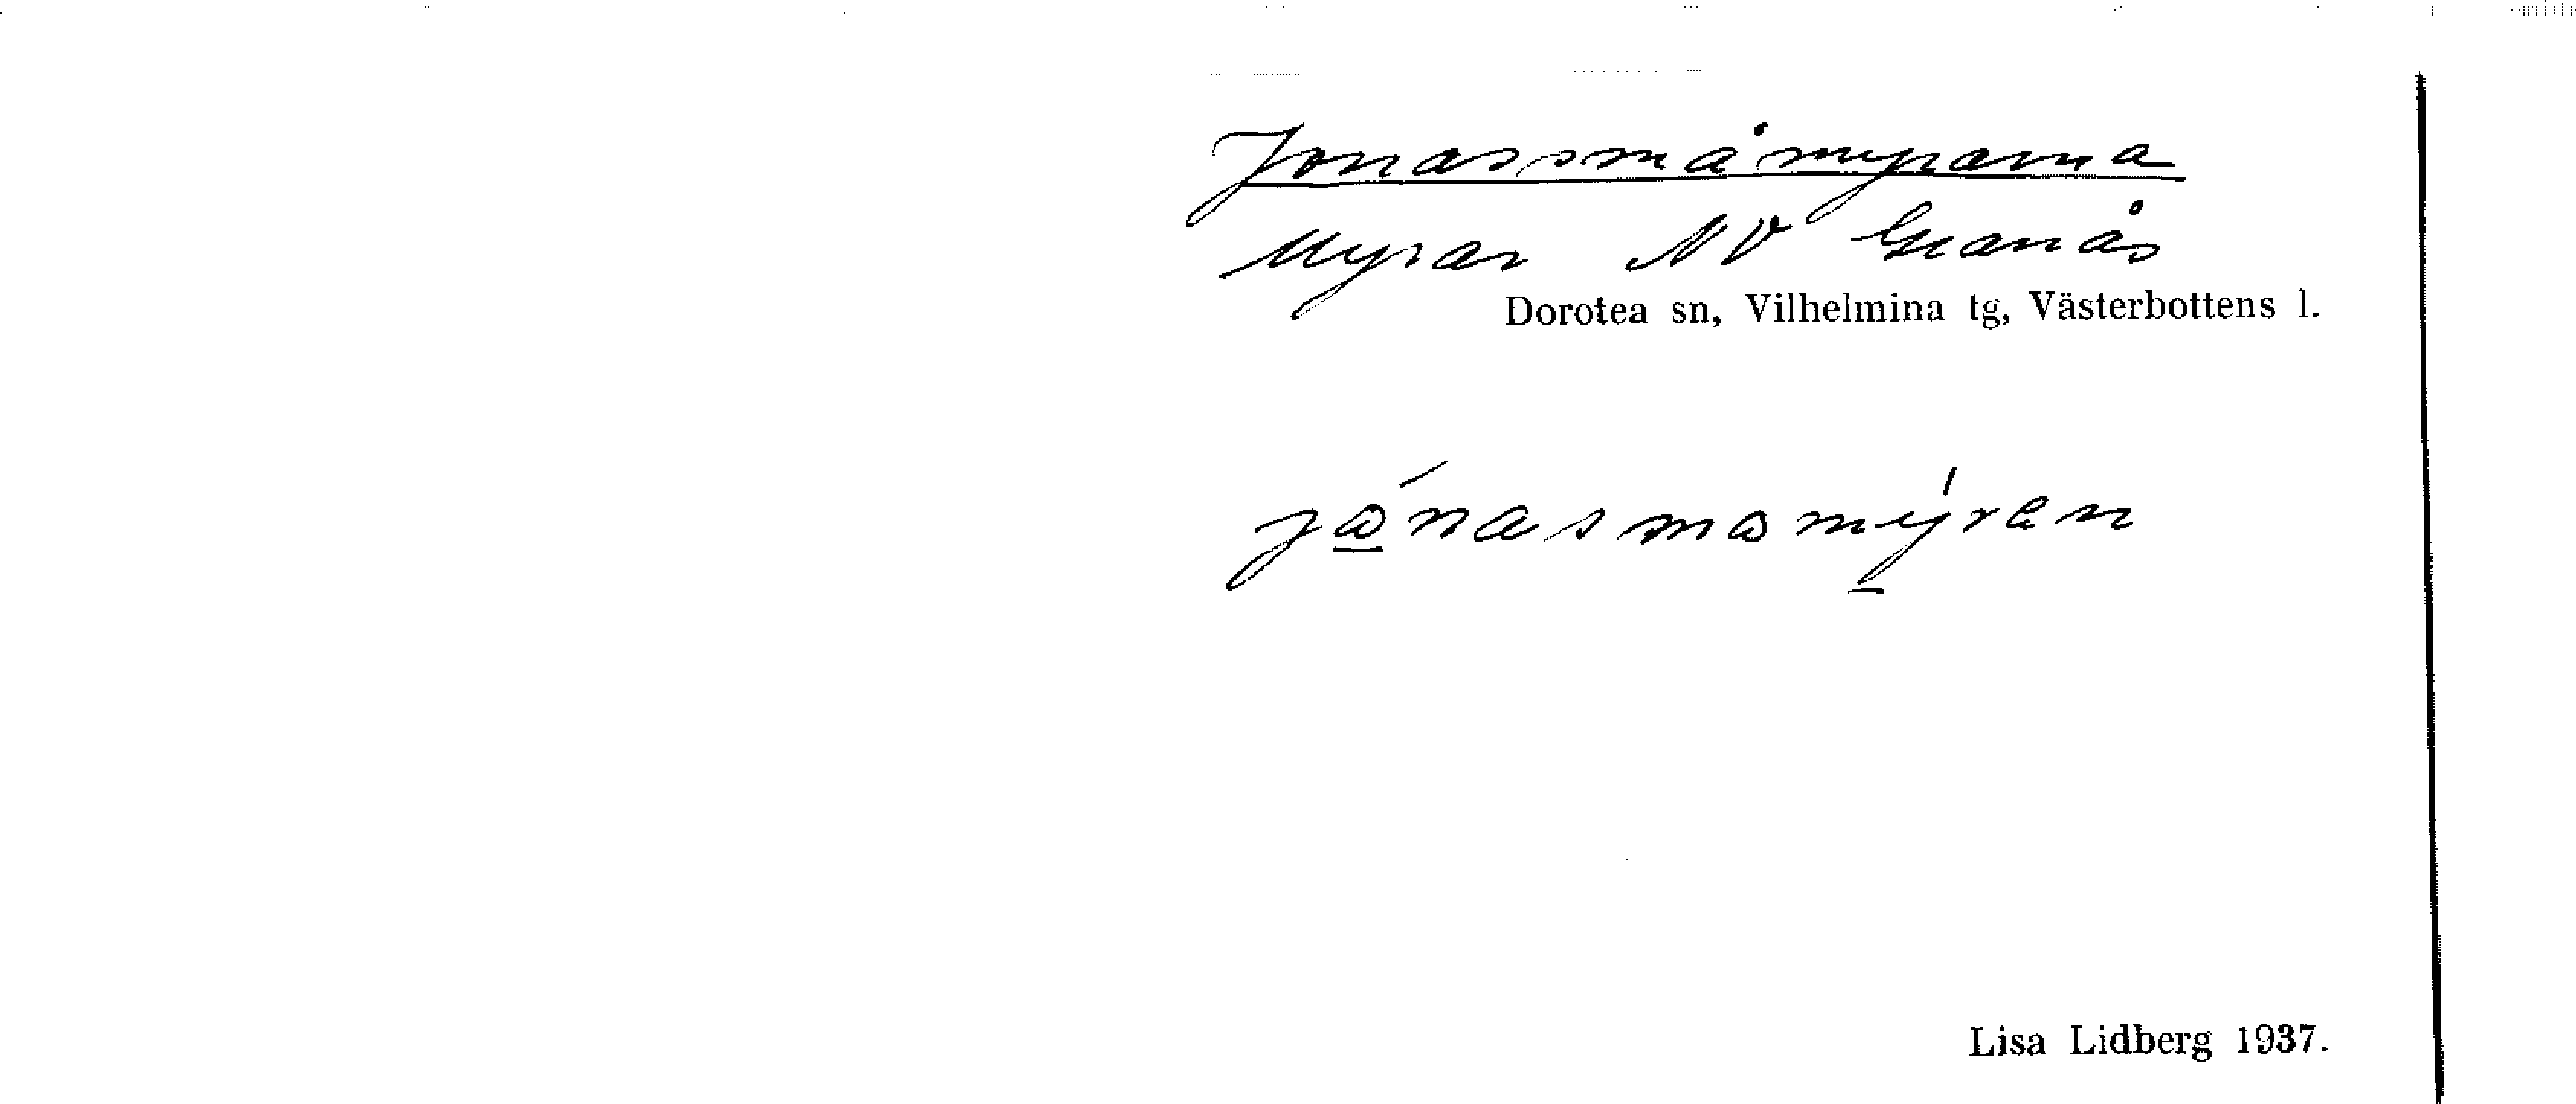 Jonassmåmyrarna
Myrar NV Granås
Dorotea sn, Vilhelmina tg, Västerbottens l.
jó̲nasmomý̲ran
Lisa Lidberg 1937.